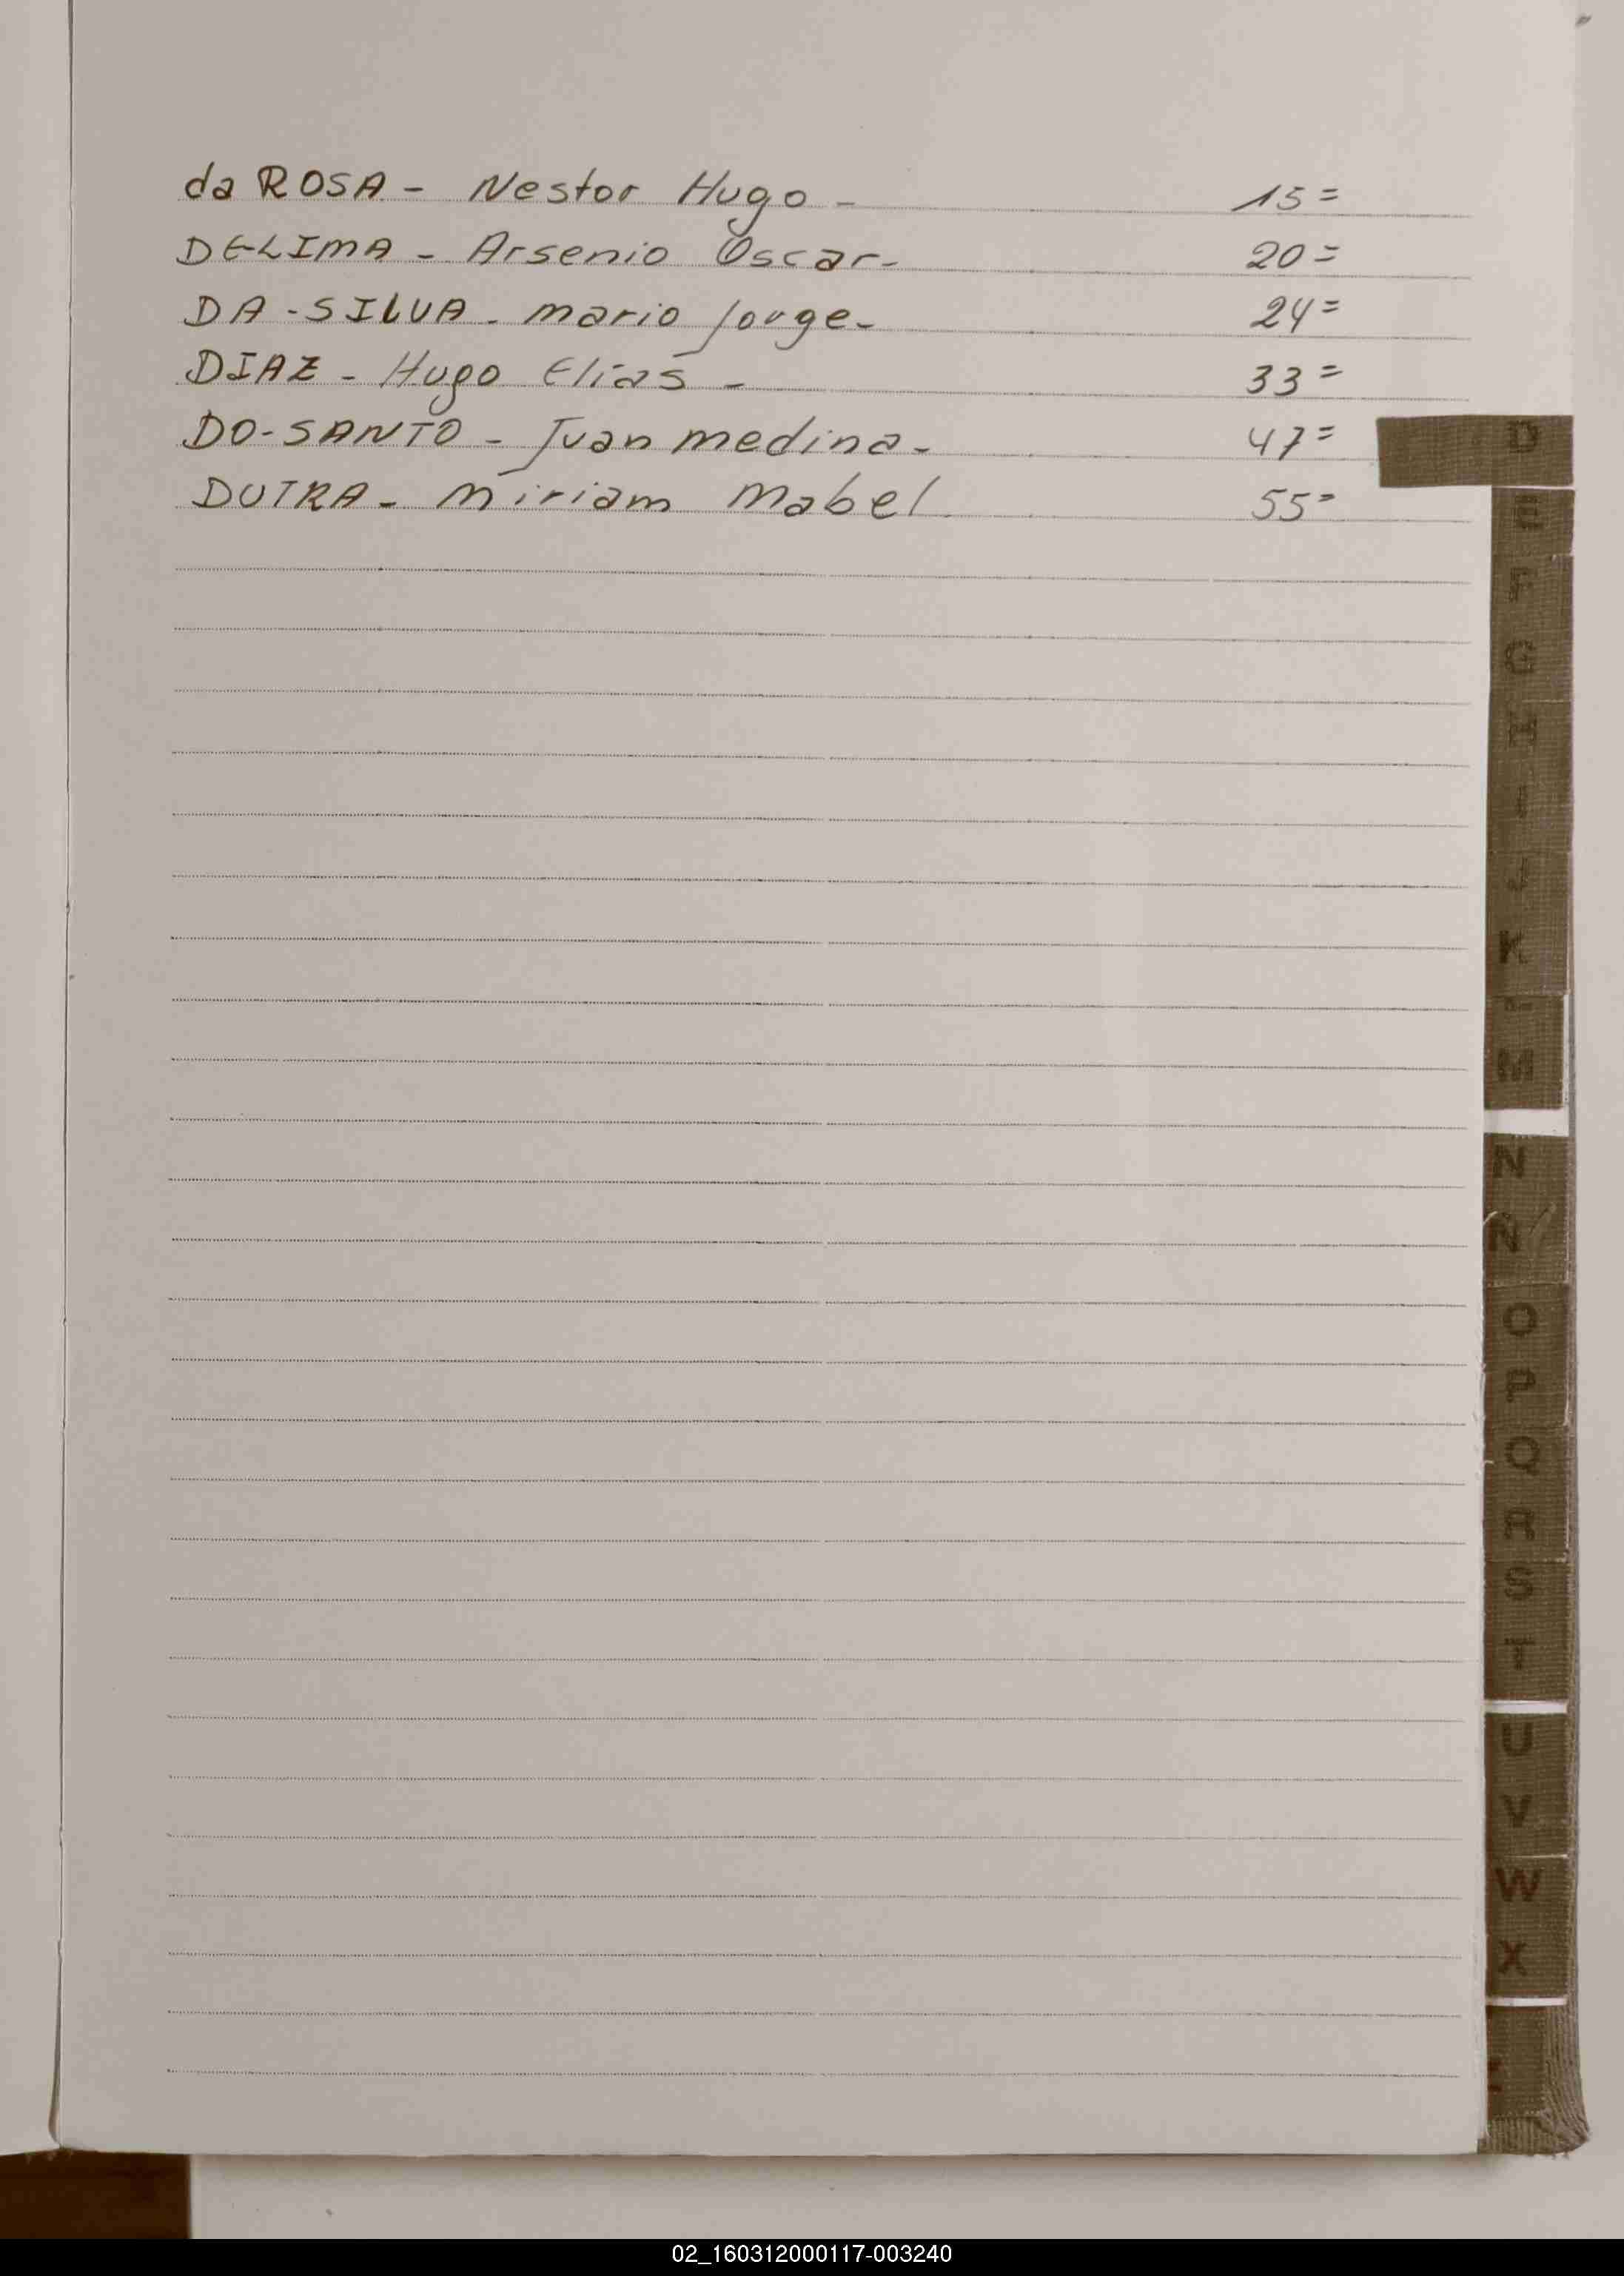 da ROSA - Nestor Hugo - 15=
DELIMA - Arsenio Oscar - 20=
DA-SILVA - Mario Jorge - 24=
DIAZ - Hugo Elias - 33=
DO-SANTO - Juan Medina - 47=
DUTRA - Miriam Mabel 55=
D
E
F
G
H
I
J
K
L
M
N
Ñ
O
P
Q
R
S
T
U
V
W
X
02_160312000117-003240